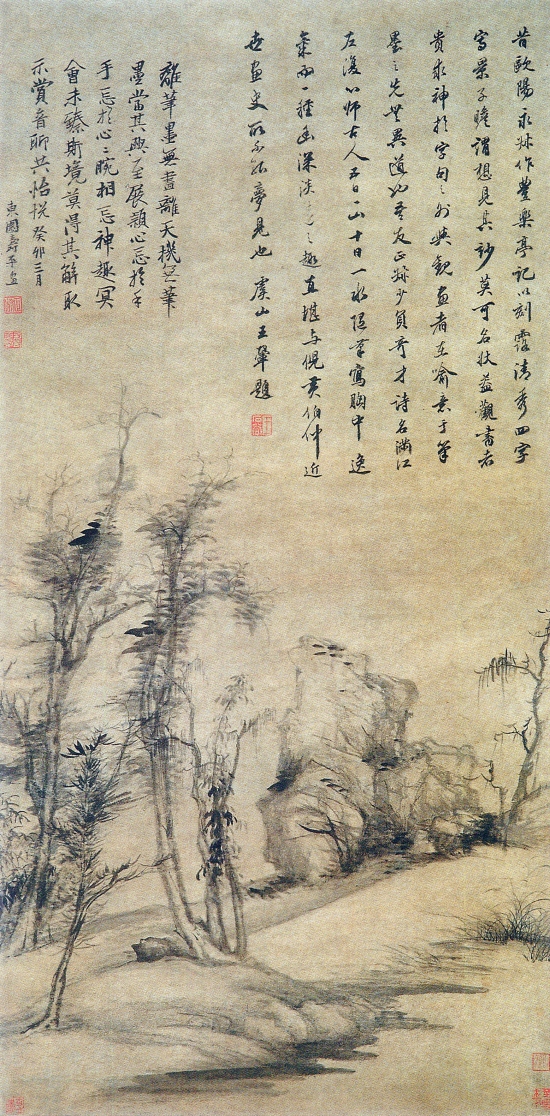 昔歐陽永叔作豐樂亭記以刻露清秀四字
寫景子瞻謂想見其妙莫可名狀益觀書者
貴求神於字句之外與觀畫者在喻意于筆
墨之先無異道也吾友正叔少負奇才詩名滿江
左復以師古人五日一山十日一水隨筆寫胸中逸
氣而一種幽深淡之趣直堪與倪黃伯仲近
世畫史所不能夢見也 虞山王翬題
離筆墨無畫離天機無筆
墨當其興至展穎心忘於手
手忘於心心腕相忘神趣冥
會未臻斯境莫得其解取
示賞音聊共怡悅癸卯三月
東園壽平畫